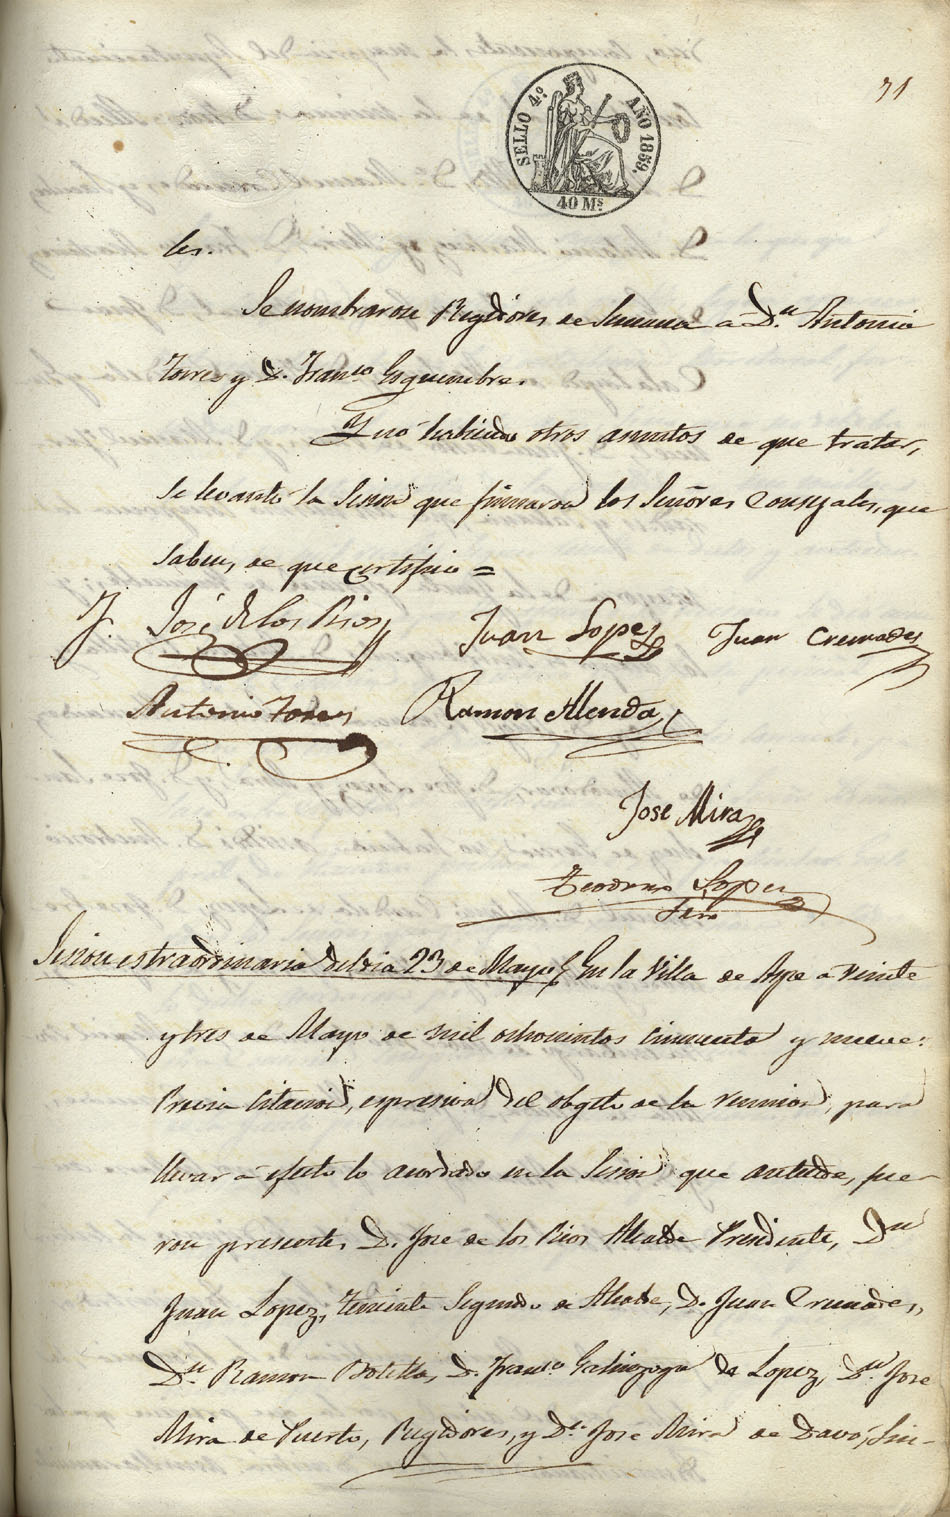 31
SELLO 4º AÑO 1859.
40 Ms.
les.
Se nombraron Regidores de Semana a Dn. Antonio
Torres y D. Franco Esquembre.
Y no habiendo otros asuntos de que tratar,
se levantó la Sesion que firmaron los Señores Concejales, que
saben, de que certifico =
José de los Rios
Juan Lopez
Juan Cremades
Antonio Torres
Ramon
Jose Mira
Teodoro Lopez
Srio
Sesion estraordinaria del dia 23 de Mayo En la Villa de Aspe a veinte
y tres de Mayo de mil ochocientos cincuenta y nueve:
Previa citacion, espresiva del objeto de la reunion, para
llevar a efecto lo acordado en la Sesion que antecede, fue-
ron presentes, D. Jose de los Rios Alcalde Presidente, Dn
Juan Lopez, teniente Segundo de Alcalde, D. Juan Cremades,
Dn. Ramon Botella, D. Franco Galinsoga de Lopez, Dn. Jose
Mira de Puerto, Regidores, y Dn. Jose Mira de Davó, Sin-